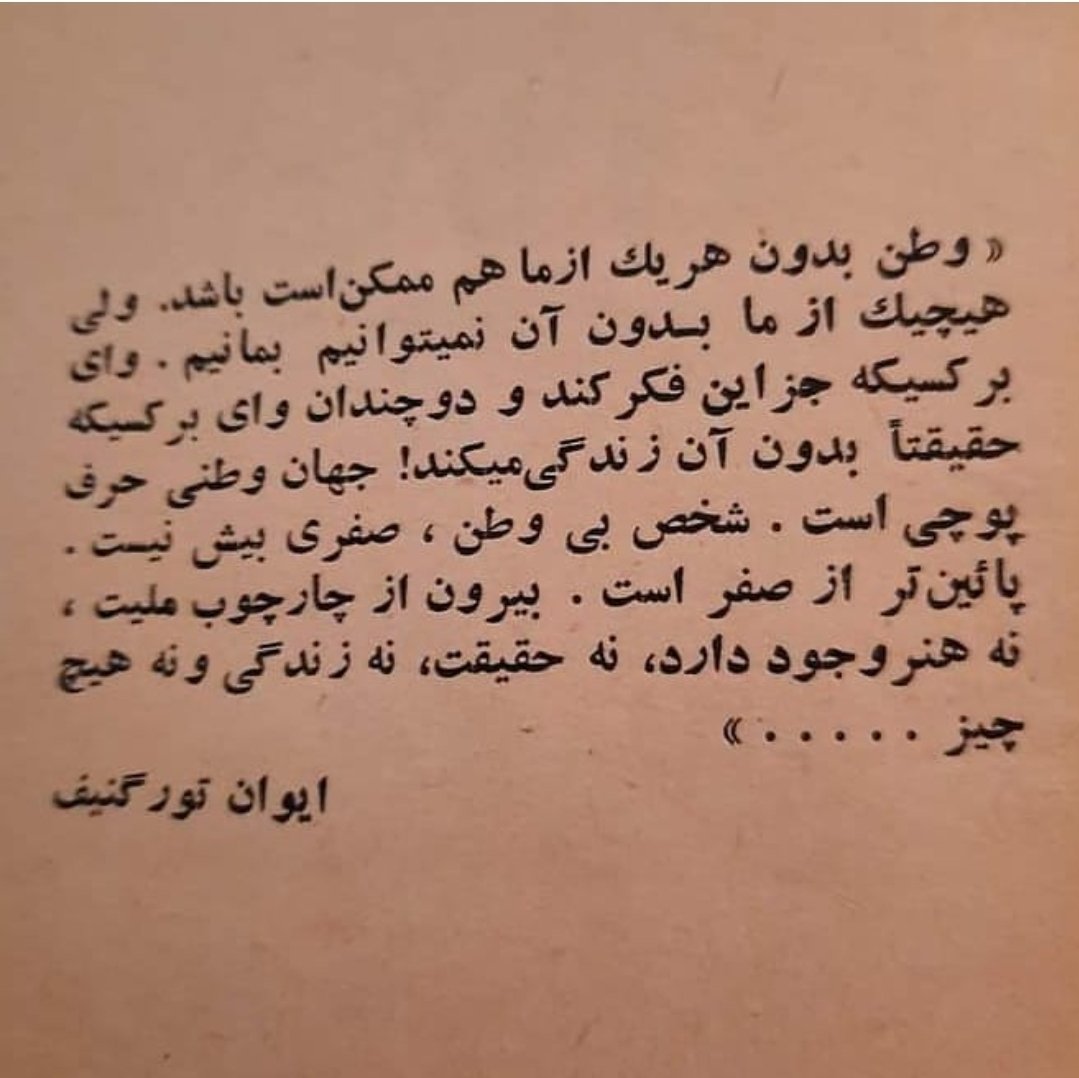 « وطن بدون هر يك از ما هم ممكن است باشد. ولی
هيچيك از ما بدون آن نميتوانيم بمانيم . وای
بر كسيكه جز اين فكر كند و دوچندان وای بر كسيكه
حقيقتاً بدون آن زندگی ميكند! جهان وطنی حرف
پوچی است . شخص بی وطن ، صفری بيش نيست .
پائين‌تر از صفر است . بيرون از چارچوب مليت ،
نه هنر وجود دارد، نه حقيقت، نه زندگی و نه هيچ
چيز . . . . . »
ايوان تورگنيف